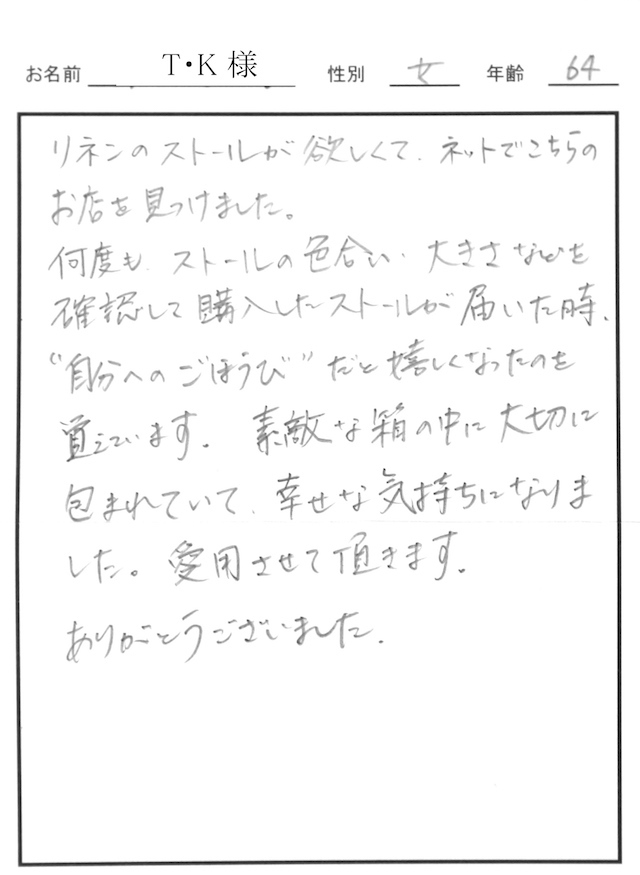 お名前 T・K様 性別 女 年齢 64
リネンのストールが欲しくて、ネットでこちらの
お店を見つけました。
何度も、ストールの色合い、大きさなどを
確認して購入したストールが届いた時、
“自分へのごほうび”だと嬉しくなったのを
覚えています。素敵な箱の中に大切に
包まれていて、幸せな気持ちになりま
した。愛用させて頂きます。
ありがとうございました。